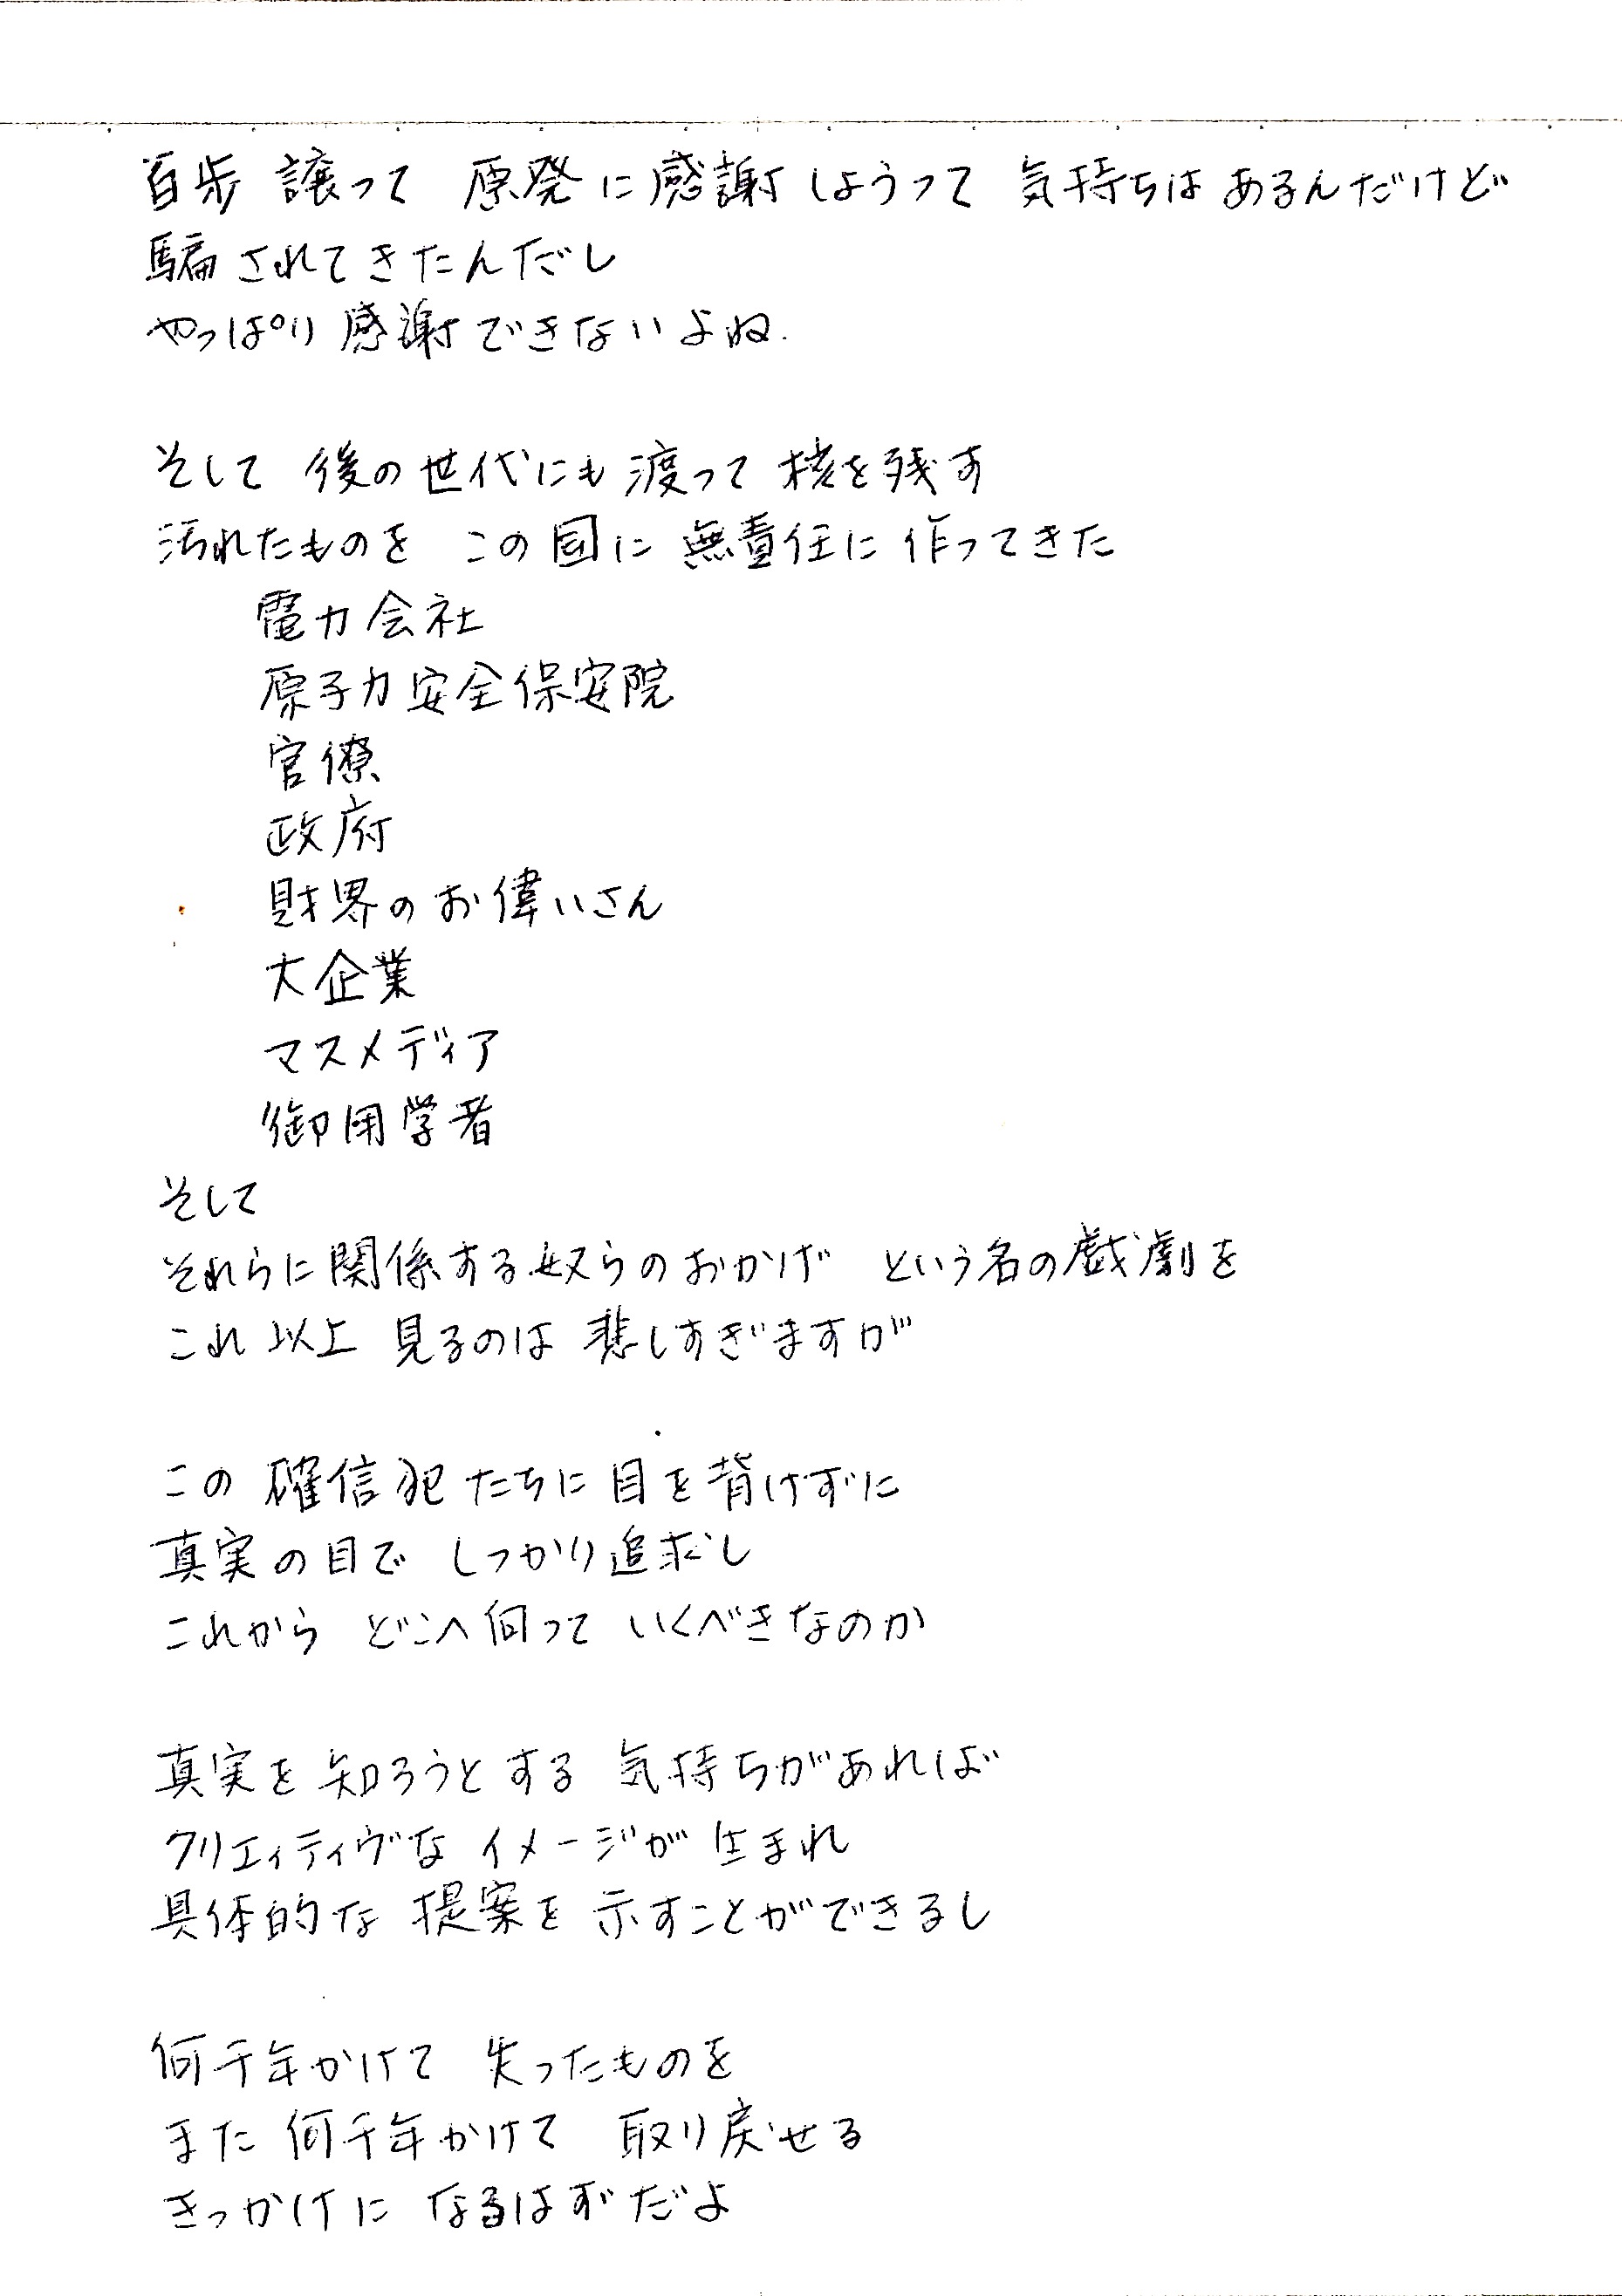 百歩 譲って 原発に感謝しようって 気持ちは あるんだけど
騙されてきたんだし
やっぱり 感謝できないよね.
そして 後の世代にも 渡って 核を残す
汚れたものを この国に 無責任に 作ってきた
電力会社
原子力安全保安院
官僚
政府
財界のお偉いさん
大企業
マスメディア
御用学者
そして
それらに関係する奴らのおかげ という名の戯劇を
これ以上 見るのは 悲しすぎますが
この 確信犯たちに 目を背けずに
真実の目で しっかり追求し
これから どこへ向って いくべきなのか
真実を知ろうとする 気持ちがあれば
クリエィティヴな イメージが 生まれ
具体的な 提案を 示すことができるし
何千年かけて 失ったものを
また 何千年かけて 取り戻せる
きっかけに なるはずだよ